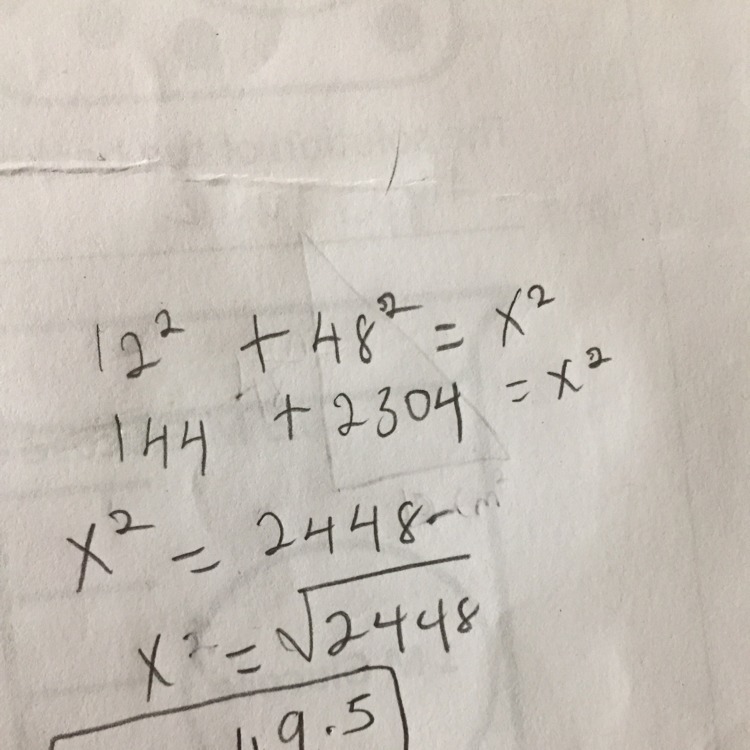 12² + 48² = x²
144 + 2304 = x²
x² = 2448
x² = √2448
49.5